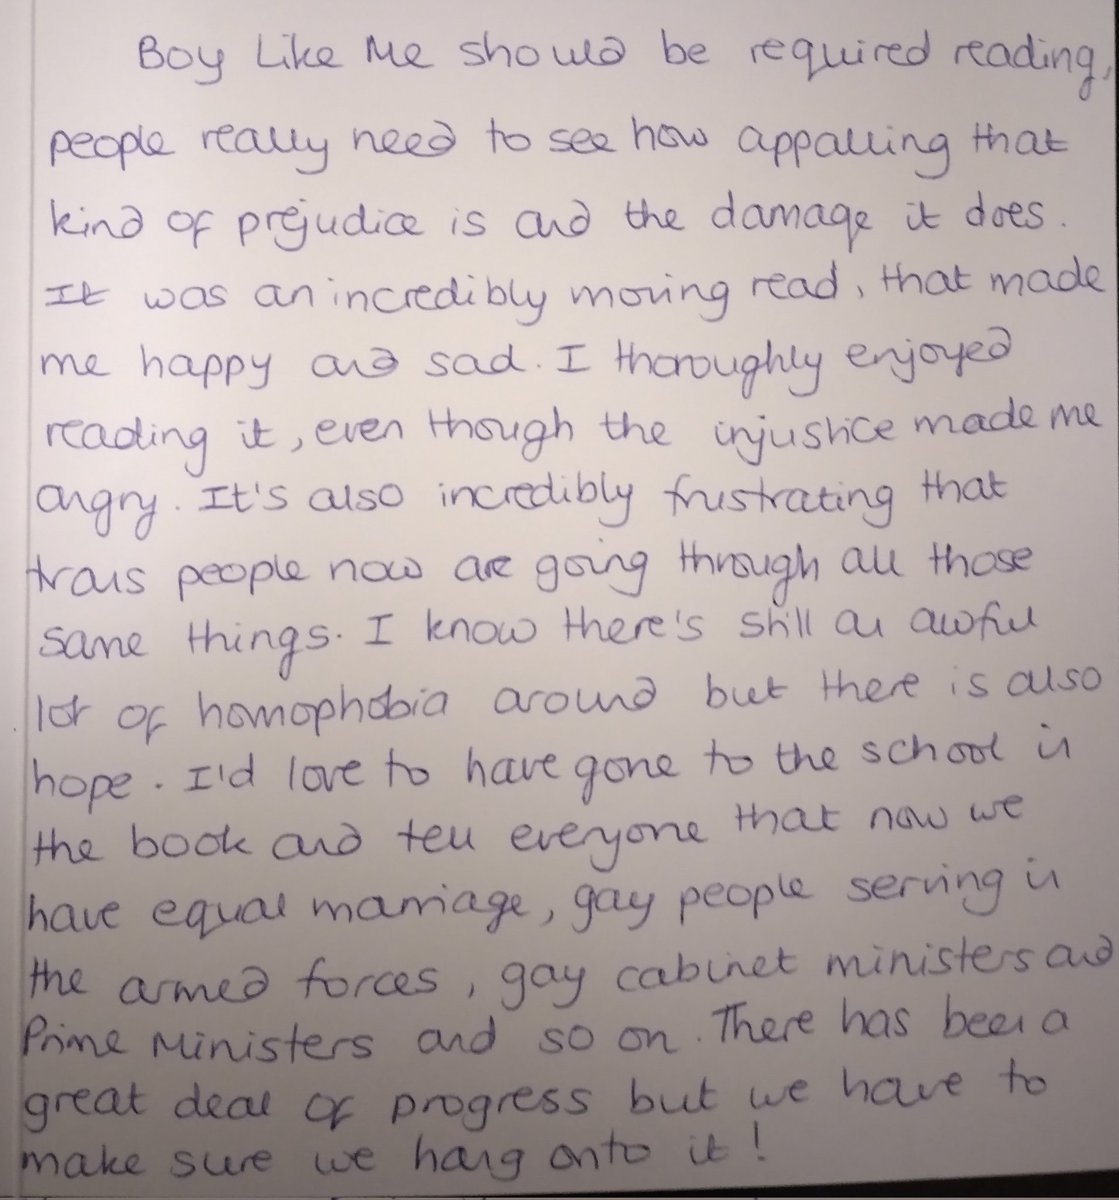 Boy Like Me should be required reading,
people really need to see how appalling that
kind of prejudice is and the damage it does.
It was an incredibly moving read, that made
me happy and sad. I thoroughly enjoyed
reading it, even though the injustice made me
angry. It's also incredibly frustrating that
trans people now are going through all those
same things. I know there's still an awful
lot of homophobia around but there is also
hope. I'd love to have gone to the school in
the book and tell everyone that now we
have equal marriage, gay people serving in
the armed forces, gay cabinet ministers and
Prime Ministers and so on. There has been a
great deal of progress but we have to
make sure we hang onto it!